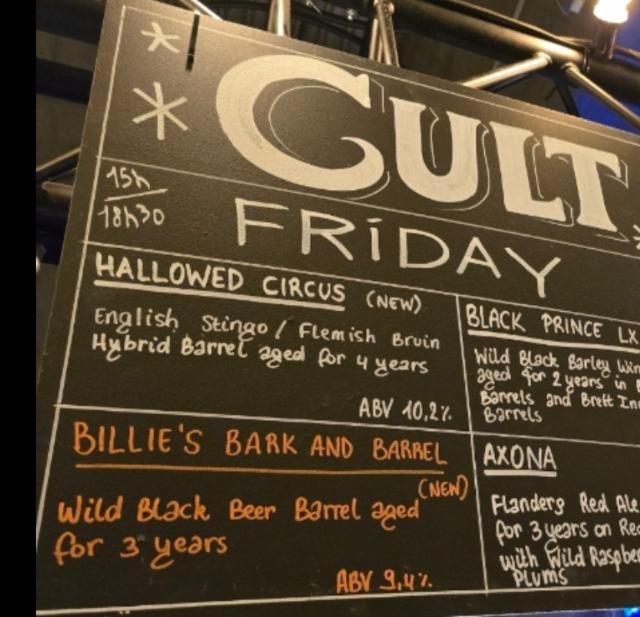 CULT
15h
18h30
FRiDAY
HALLOWED CIRCUS (NEW)
English Stingo / Flemish Bruin
Hybrid Barrel aged for 4 years
ABV 10,2%
BLACK PRINCE LX
Wild Black Barley
aged for 2 years in
Barrels and Brett
Barrels
BILLIE'S BARK AND BARREL
(NEW)
Wild Black Beer Barrel aged
for 3 years
ABV 9,4%
AXONA
Flanders Red Ale
for 3 years on
with Wild
Plums